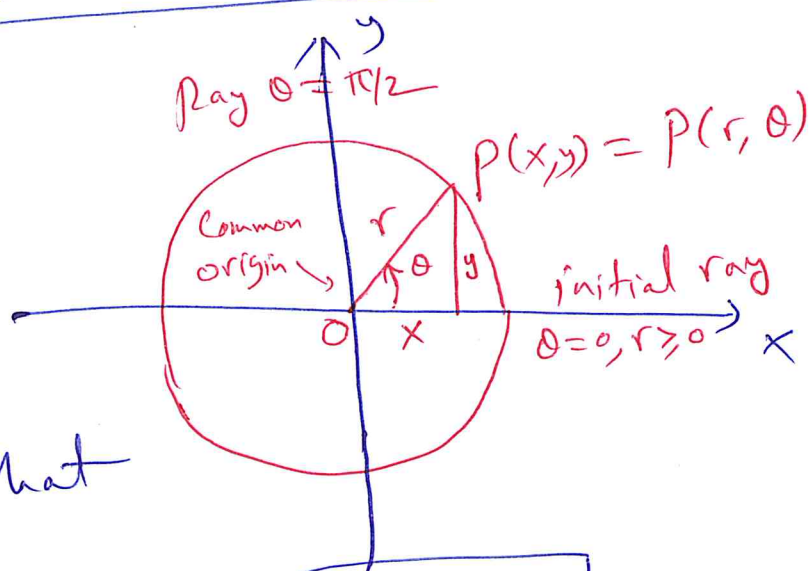 y
Ray θ = π/2
P(x,y) = P(r, θ)
Common
origin
r
θ
y
initial ray
O
x
θ=0, r≥0
x
hat